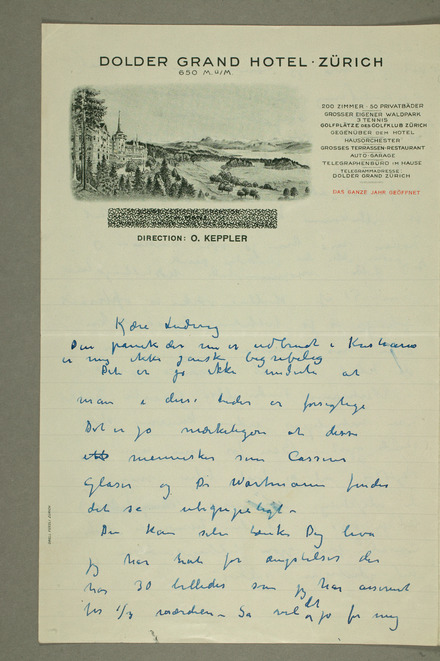 DOLDER GRAND HOTEL · ZÜRICH
650 M. ü/M.
200 ZIMMER · 50 PRIVATBÄDER
GROSSER EIGENER WALDPARK
3 TENNIS
GOLFPLÄTZE DES GOLFKLUB ZÜRICH
GEGENÜBER DEM HOTEL
HAUSORCHESTER
GROSSES TERRASSEN-RESTAURANT
AUTO-GARAGE
TELEGRAPHENBÜRO IM HAUSE
TELEGRAMMADRESSE:
DOLDER GRAND ZÜRICH
DAS GANZE JAHR GEÖFFNET
DIRECTION: O. KEPPLER
Kære Ludvig
Den panik der nu er udbrudt i
er mig ikke ganske begribelig
Det er jo ikke at
man i disse tider er forsigtige
Det er jo at disse
mennesker som
Glaser og Dr Wartmann finder
det så
Du kan selv tænke Dig hva
jeg har havt for ængstelser der
har 30 billeder som jeg har assureret
for 1/3 værdien – Så vel er det jo for mig